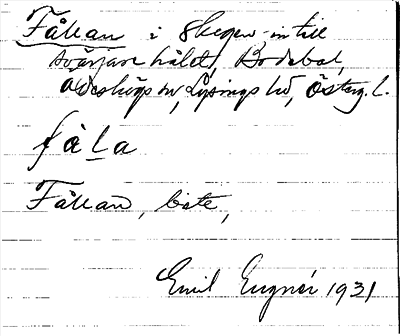 Fållan i Skogen intill
Svärjare hålet, Bodebol,
Ödeshögs sn, Lysings hd, Österg. L.
fåla
Fållan, bete,
Emil Eugnér 1931